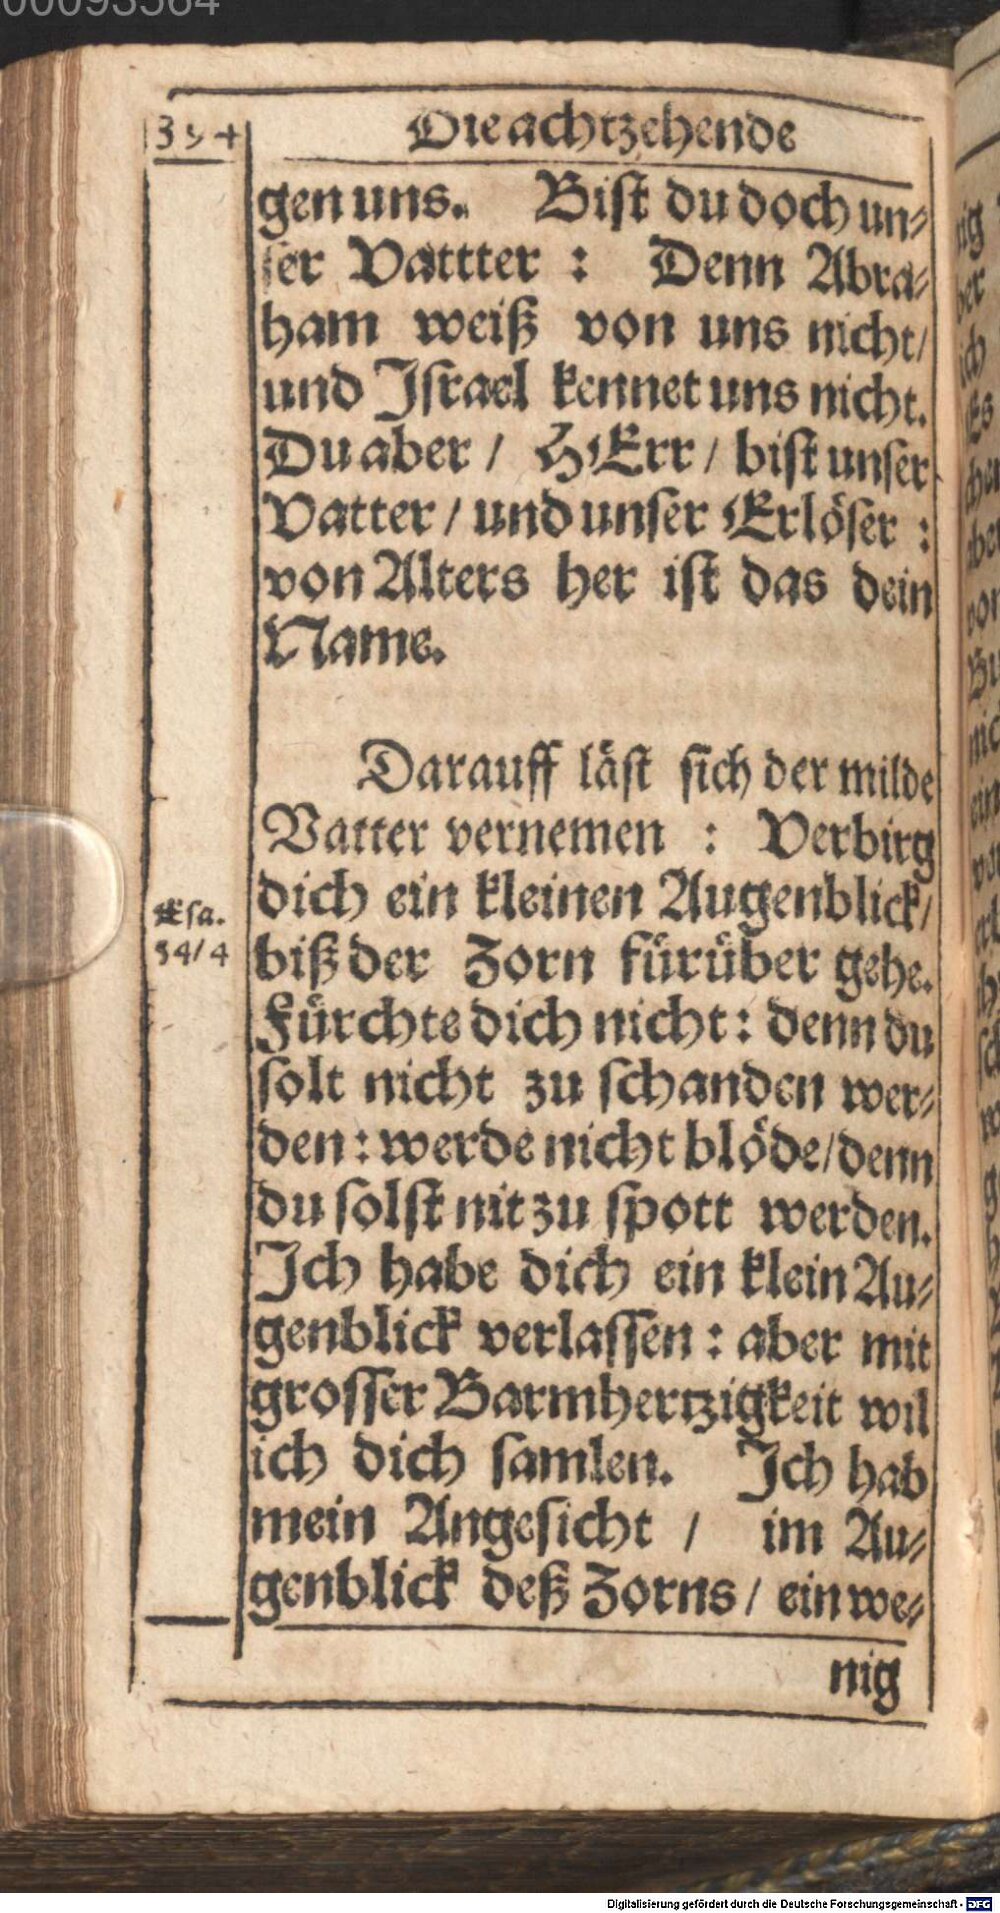 00093564
394
Die achtzehende
gen uns. Bist du doch un-
ser Vattter : Denn Abra-
ham weiß von uns nicht/
und Israel kennet uns nicht.
Du aber / HErr / bist unser
Vatter / und unser Erlöser :
von Alters her ist das dein
Name.
Darauff läst sich der milde
Vatter vernemen : Verbirg
dich ein kleinen Augenblick/
Esa.
54/4
biß der Zorn fürüber gehe.
Fürchte dich nicht : denn du
solt nicht zu schanden wer-
den : werde nicht blöde/denn
du solst nit zu spott werden.
Ich habe dich ein klein Au-
genblick verlassen : aber mit
grosser Barmhertzigkeit wil
ich dich samlen. Ich hab
mein Angesicht / im Au-
genblick deß Zorns / ein we-
nig
Digitalisierung gefördert durch die Deutsche Forschungsgemeinschaft - DFG